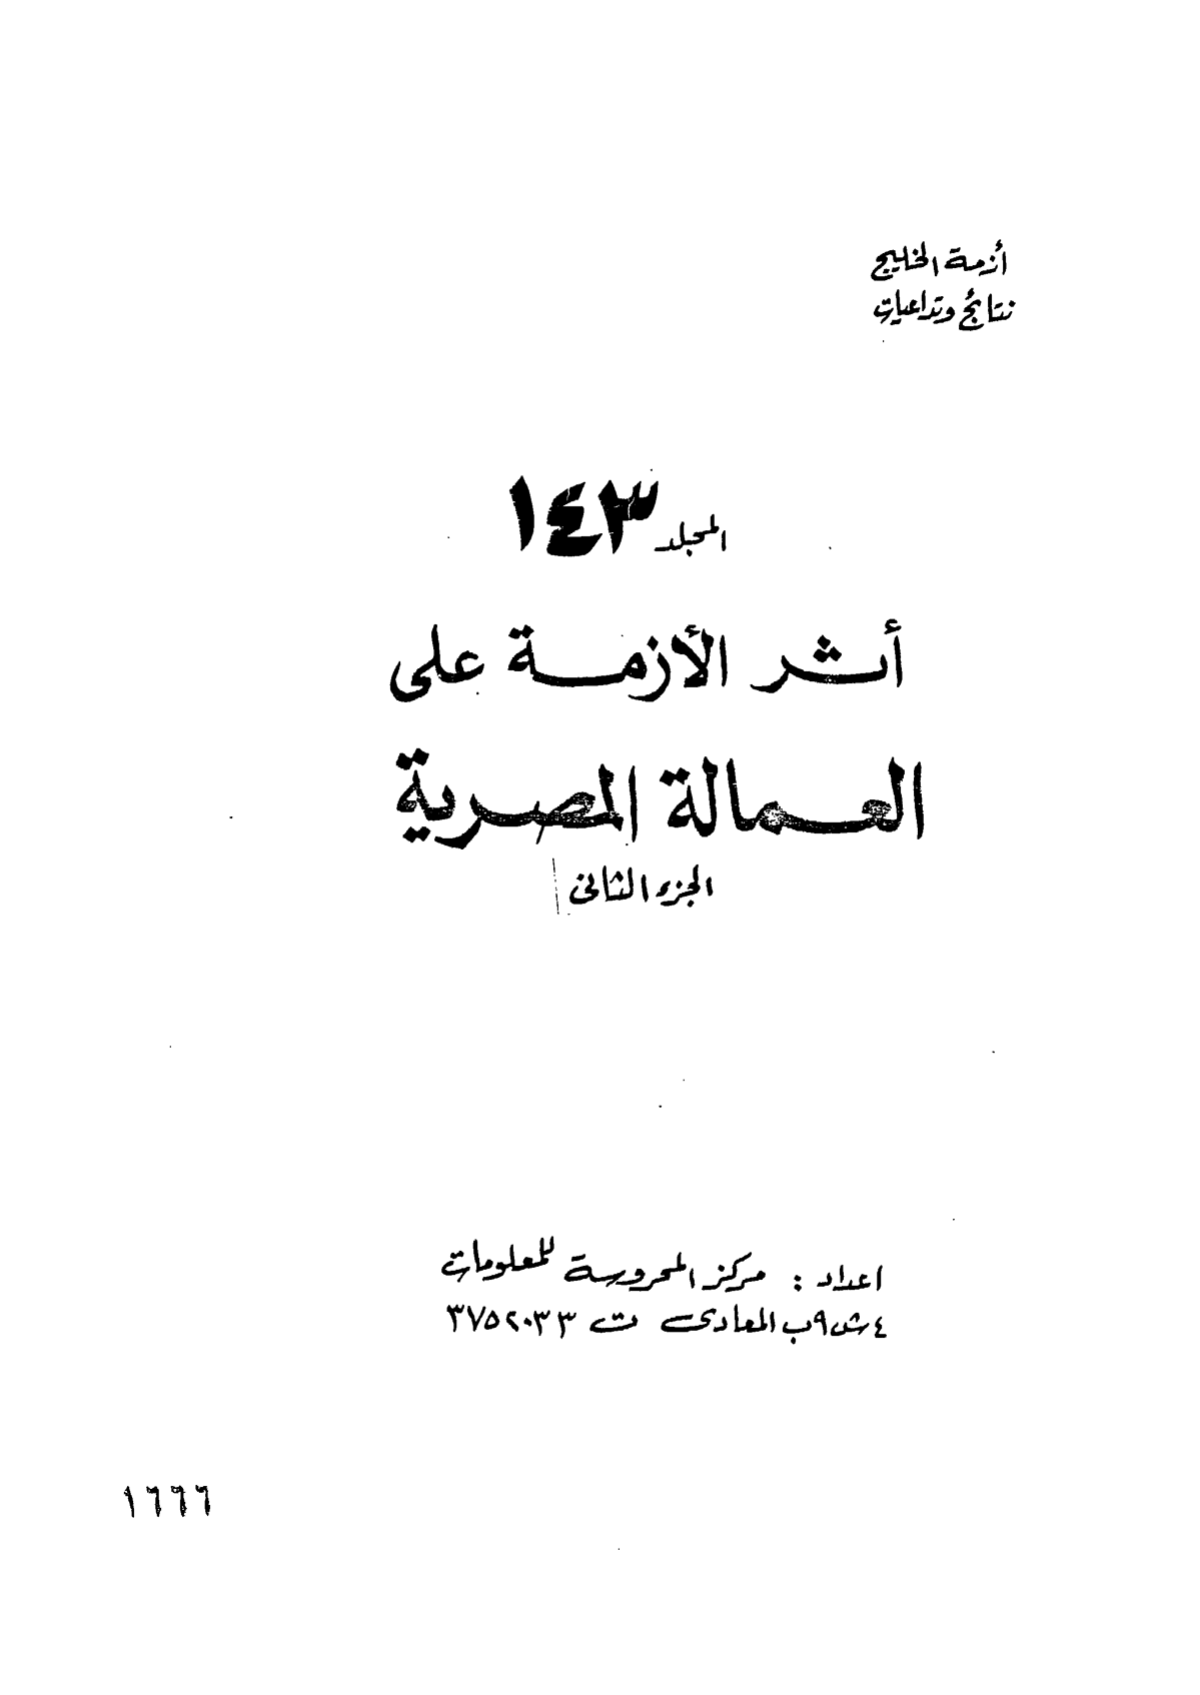 أزمة الخليج
نتائج وتداعيات
المجلد ١٤٣
أثر الأزمة على
العمالة المصرية
الجزء الثانى
اعداد : مركز المحروسة للمعلومات
٤ ش ٩ب المعادى ت ٣٧٥٢٠٣٣
١٦٦٦